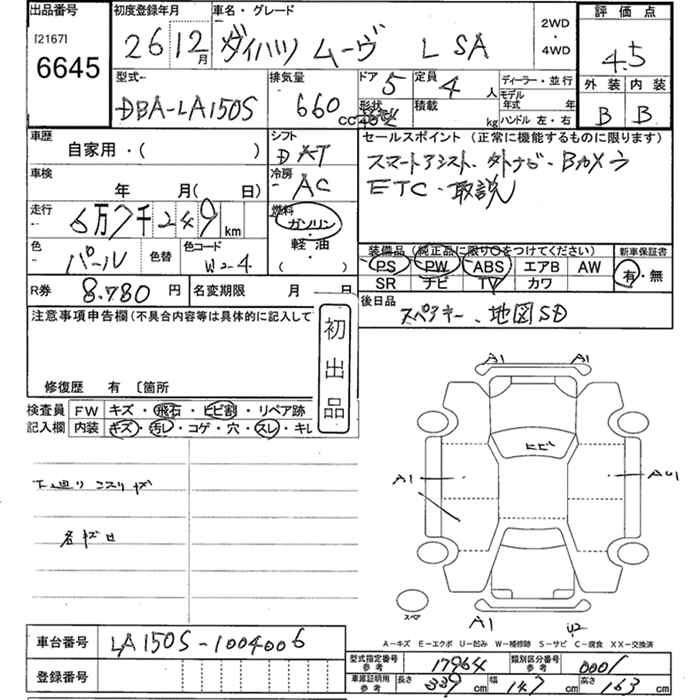 出品番号 初度登録年月 車名・グレード 2WD・4WD 評価点
[2167]
6645 26 12月 ダイハツ ムーヴ L SA 4.5
型式 排気量 ドア 5 定員 4人 ディーラー・並行 外装 内装
DBA-LA150S 660cc 形状 積載 kg モデル年式 年 B B
ハンドル 左・右
車歴 シフト セールスポイント (正常に機能するものに限ります)
自家用・( ) DAT スマートアシスト、外ナビ・Bカメラ
車検 冷房 ETC・取説
年 月( 日) AC
走行 燃料
6万7千249km ガソリン・軽油・( )
色 色替 色コード 装備品(純正品に限り○をつけてください) 新車保証書
パール W24 PS PW ABS エアB AW 有・無
SR ナビ TV カワ
R券 8.780円 名変期限 月 日 後日品
注意事項申告欄(不具合内容等は具体的に記入して スペアキー、地図SD
初出品
修復歴 有 〔箇所
検査員 FW キズ・飛石・ヒビ割・リペア跡
記入欄 内装 キズ・汚レ・コゲ・穴・スレ・キレ
A1 A1
ヒビ
下廻りコスリキズ A1 AU1
各キズ凹
スペア
A1 U2
A-キズ E-エクボ U-凹み W-補修跡 S-サビ C-腐食 XX-交換済
車台番号 LA150S-1004006
型式指定番号 参考 17964 類別区分番号 参考 0001
登録番号 車庫証明用 参考 長さ 339cm 幅 147cm 高さ 163cm